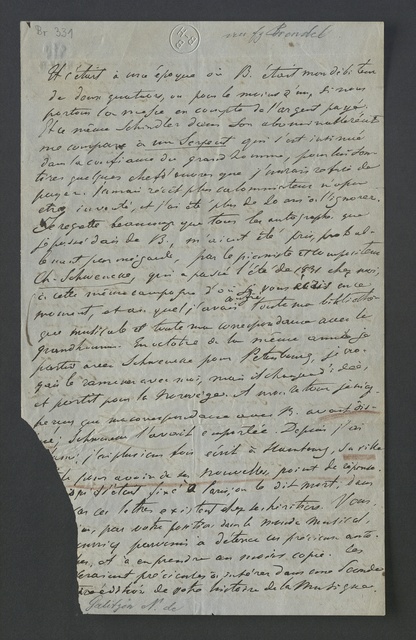 Br 331
Et c'était à une époque où B. était mon débiteur
de deux quatuors, ou pour le moins d'un, si nous
portons la messe en compte de l'argent payé.
Et ce même Schindler dans son
me compare à un Serpent qui s'est insinué
dans la confiance du grand homme, pour lui sou-
tirer quelques chefs d'œuvres que j'aurais refusé de
payer. Jamais récit plus calomniateur n'a pu
être inventé, et j'ai été plus de 20 ans à l'ignorer.
Je regrette beaucoup que tous les autographes que
je possédais de B., m'aient été pris, probab-
lement par mégarde, par le pianiste et compositeur
Ch. Schwencke, qui a passé l'été de 1831 chez moi,
à cette même campagne d'où je vous écris en ce
moment, et auquel j'avais toute ma bibliothè-
que musicale et toute ma correspondance avec le
grand homme. En octobre de la même année je
partis avec Schwencke pour Petersbourg, je
le ramener avec moi, mais il changea d'idée,
et partit pour la Norvège. À mon retour je m'ap-
perçus que ma correspondance avec B. avait dis-
Schwencke l'avait emportée. Depuis j'ai
plusieurs fois écrit à Hambourg, sa ville
pour avoir de ses nouvelles, point de réponse.
s'était fixé à Paris, on le dit mort, dans
cas ces lettres existent chez les héritiers. Vous
par votre position dans le monde musical,
parvenir à déterrer ces précieux auto-
et à en prendre au moins copie. Ces
seraient précieuses à insérer dans une seconde
édition de votre histoire de la Musique.
Galitzin N. de